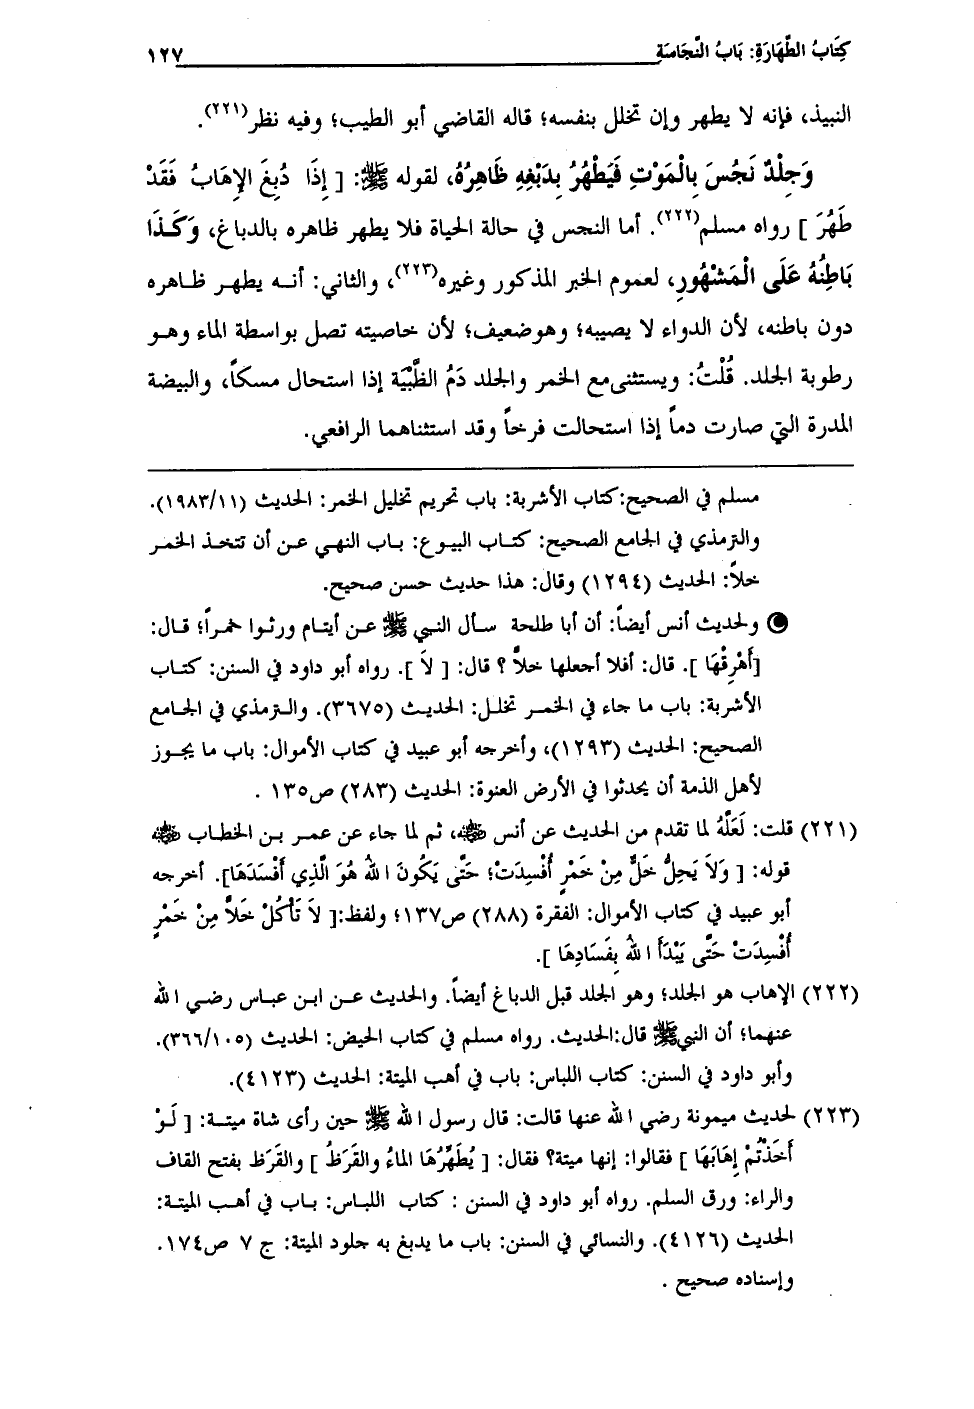 كِتَابُ الطَّهَارَةِ: بَابُ النَّجَاسَةِ ١٢٧
النبيذ، فإنه لا يطهر وإن تخلل بنفسه؛ قاله القاضي أبو الطيب؛ وفيه نظر(٢٢١).
وَجِلْدٌ نَجُسَ بِالْمَوْتِ فَيَطْهُرُ بِدَبْغِهِ ظَاهِرُهُ، لقوله ﷺ: [ إِذَا دُبِغَ الإِهَابُ فَقَدْ
طَهُرَ ] رواه مسلم(٢٢٢). أما النجس في حالة الحياة فلا يطهر ظاهره بالدباغ، وَكَذَا
بَاطِنُهُ عَلَى الْمَشْهُورِ، لعموم الخبر المذكور وغيره(٢٢٣)، والثاني: أنه يطهر ظاهره
دون باطنه، لأن الدواء لا يصيبه؛ وهوضعيف؛ لأن خاصيته تصل بواسطة الماء وهو
رطوبة الجلد. قُلْتُ: ويستثنى مع الخمر والجلد دَمُ الظَّبْيَة إذا استحال مسكاً، والبيضة
المدرة التي صارت دماً إذا استحالت فرخاً وقد استثناهما الرافعي.
مسلم في الصحيح: كتاب الأشربة: باب تحريم تخليل الخمر: الحديث (١٩٨٣/١١).
والترمذي في الجامع الصحيح: كتاب البيوع: باب النهي عن أن تتخذ الخمر
خلاً: الحديث (١٢٩٤) وقال: هذا حديث حسن صحيح.
ولحديث أنس أيضاً: أن أبا طلحة سأل النبي ﷺ عن أيتام ورثوا خمراً؛ قال:
[أَهْرِقْهَا ]. قال: أفلا أجعلها خلاً ؟ قال: [ لاَ ]. رواه أبو داود في السنن: كتاب
الأشربة: باب ما جاء في الخمر تخلل: الحديث (٣٦٧٥). والترمذي في الجامع
الصحيح: الحديث (١٢٩٣)، وأخرجه أبو عبيد في كتاب الأموال: باب ما يجوز
لأهل الذمة أن يحدثوا في الأرض العنوة: الحديث (٢٨٣) ص١٣٥ .
(٢٢١) قلت: لَعَلَّهُ لما تقدم من الحديث عن أنس ﷺ، ثم لما جاء عن عمر بن الخطاب ﷺ
قوله: [ وَلاَ يَحِلُّ خَلٌّ مِنْ خَمْرٍ أُفْسِدَتْ؛ حَتَّى يَكُونَ اللهُ هُوَ الَّذِي أَفْسَدَهَا]. أخرجه
أبو عبيد في كتاب الأموال: الفقرة (٢٨٨) ص١٣٧؛ ولفظ:[ لاَ تَأْكُلْ خَلاًّ مِنْ خَمْرٍ
أُفْسِدَتْ حَتَّى يَبْدَأَ اللهُ بِفَسَادِهَا ].
(٢٢٢) الإهاب هو الجلد؛ وهو الجلد قبل الدباغ أيضاً. والحديث عن ابن عباس رضي الله
عنهما؛ أن النبي ﷺ قال:الحديث. رواه مسلم في كتاب الحيض: الحديث (٣٦٦/١٠٥).
وأبو داود في السنن: كتاب اللباس: باب في أهب الميتة: الحديث (٤١٢٣).
(٢٢٣) لحديث ميمونة رضي الله عنها قالت: قال رسول الله ﷺ حين رأى شاة ميتة: [ لَوْ
أَخَذْتُمْ إِهَابَهَا ] فقالوا: إنها ميتة؟ فقال: [ يُطَهِّرُهَا الماءُ والقَرَظُ ] والقَرَظ بفتح القاف
والراء: ورق السلم. رواه أبو داود في السنن : كتاب اللباس: باب في أهب الميتة:
الحديث (٤١٢٦). والنسائي في السنن: باب ما يدبغ به جلود الميتة: ج ٧ ص١٧٤.
وإسناده صحيح .